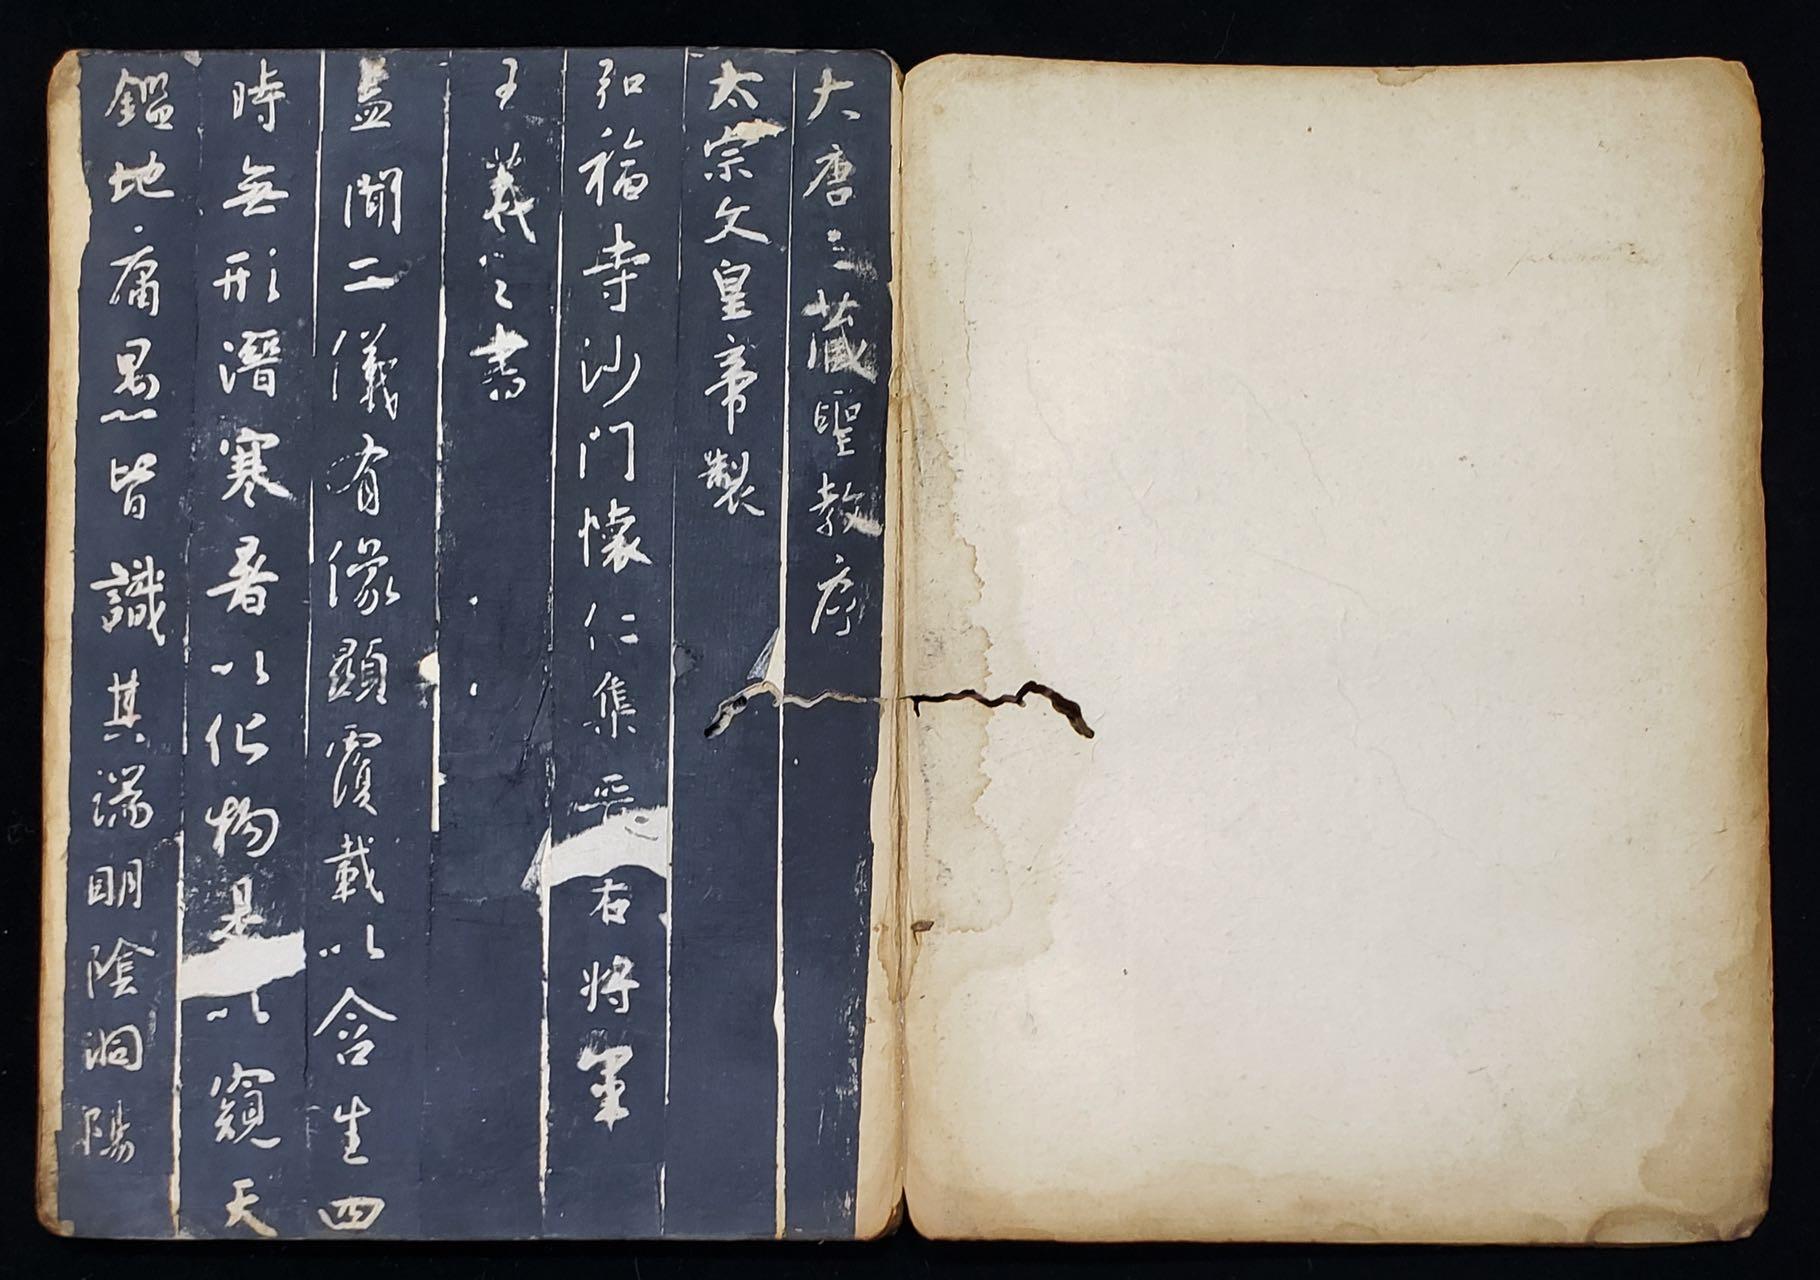 大唐三藏聖教序
太宗文皇帝製
弘福寺沙門懷仁集
右將軍
王羲之書
蓋聞二儀有像顯覆載以含生四
時無形潛寒暑以化物是以窺天
鑑地庸愚皆識其端明陰洞陽